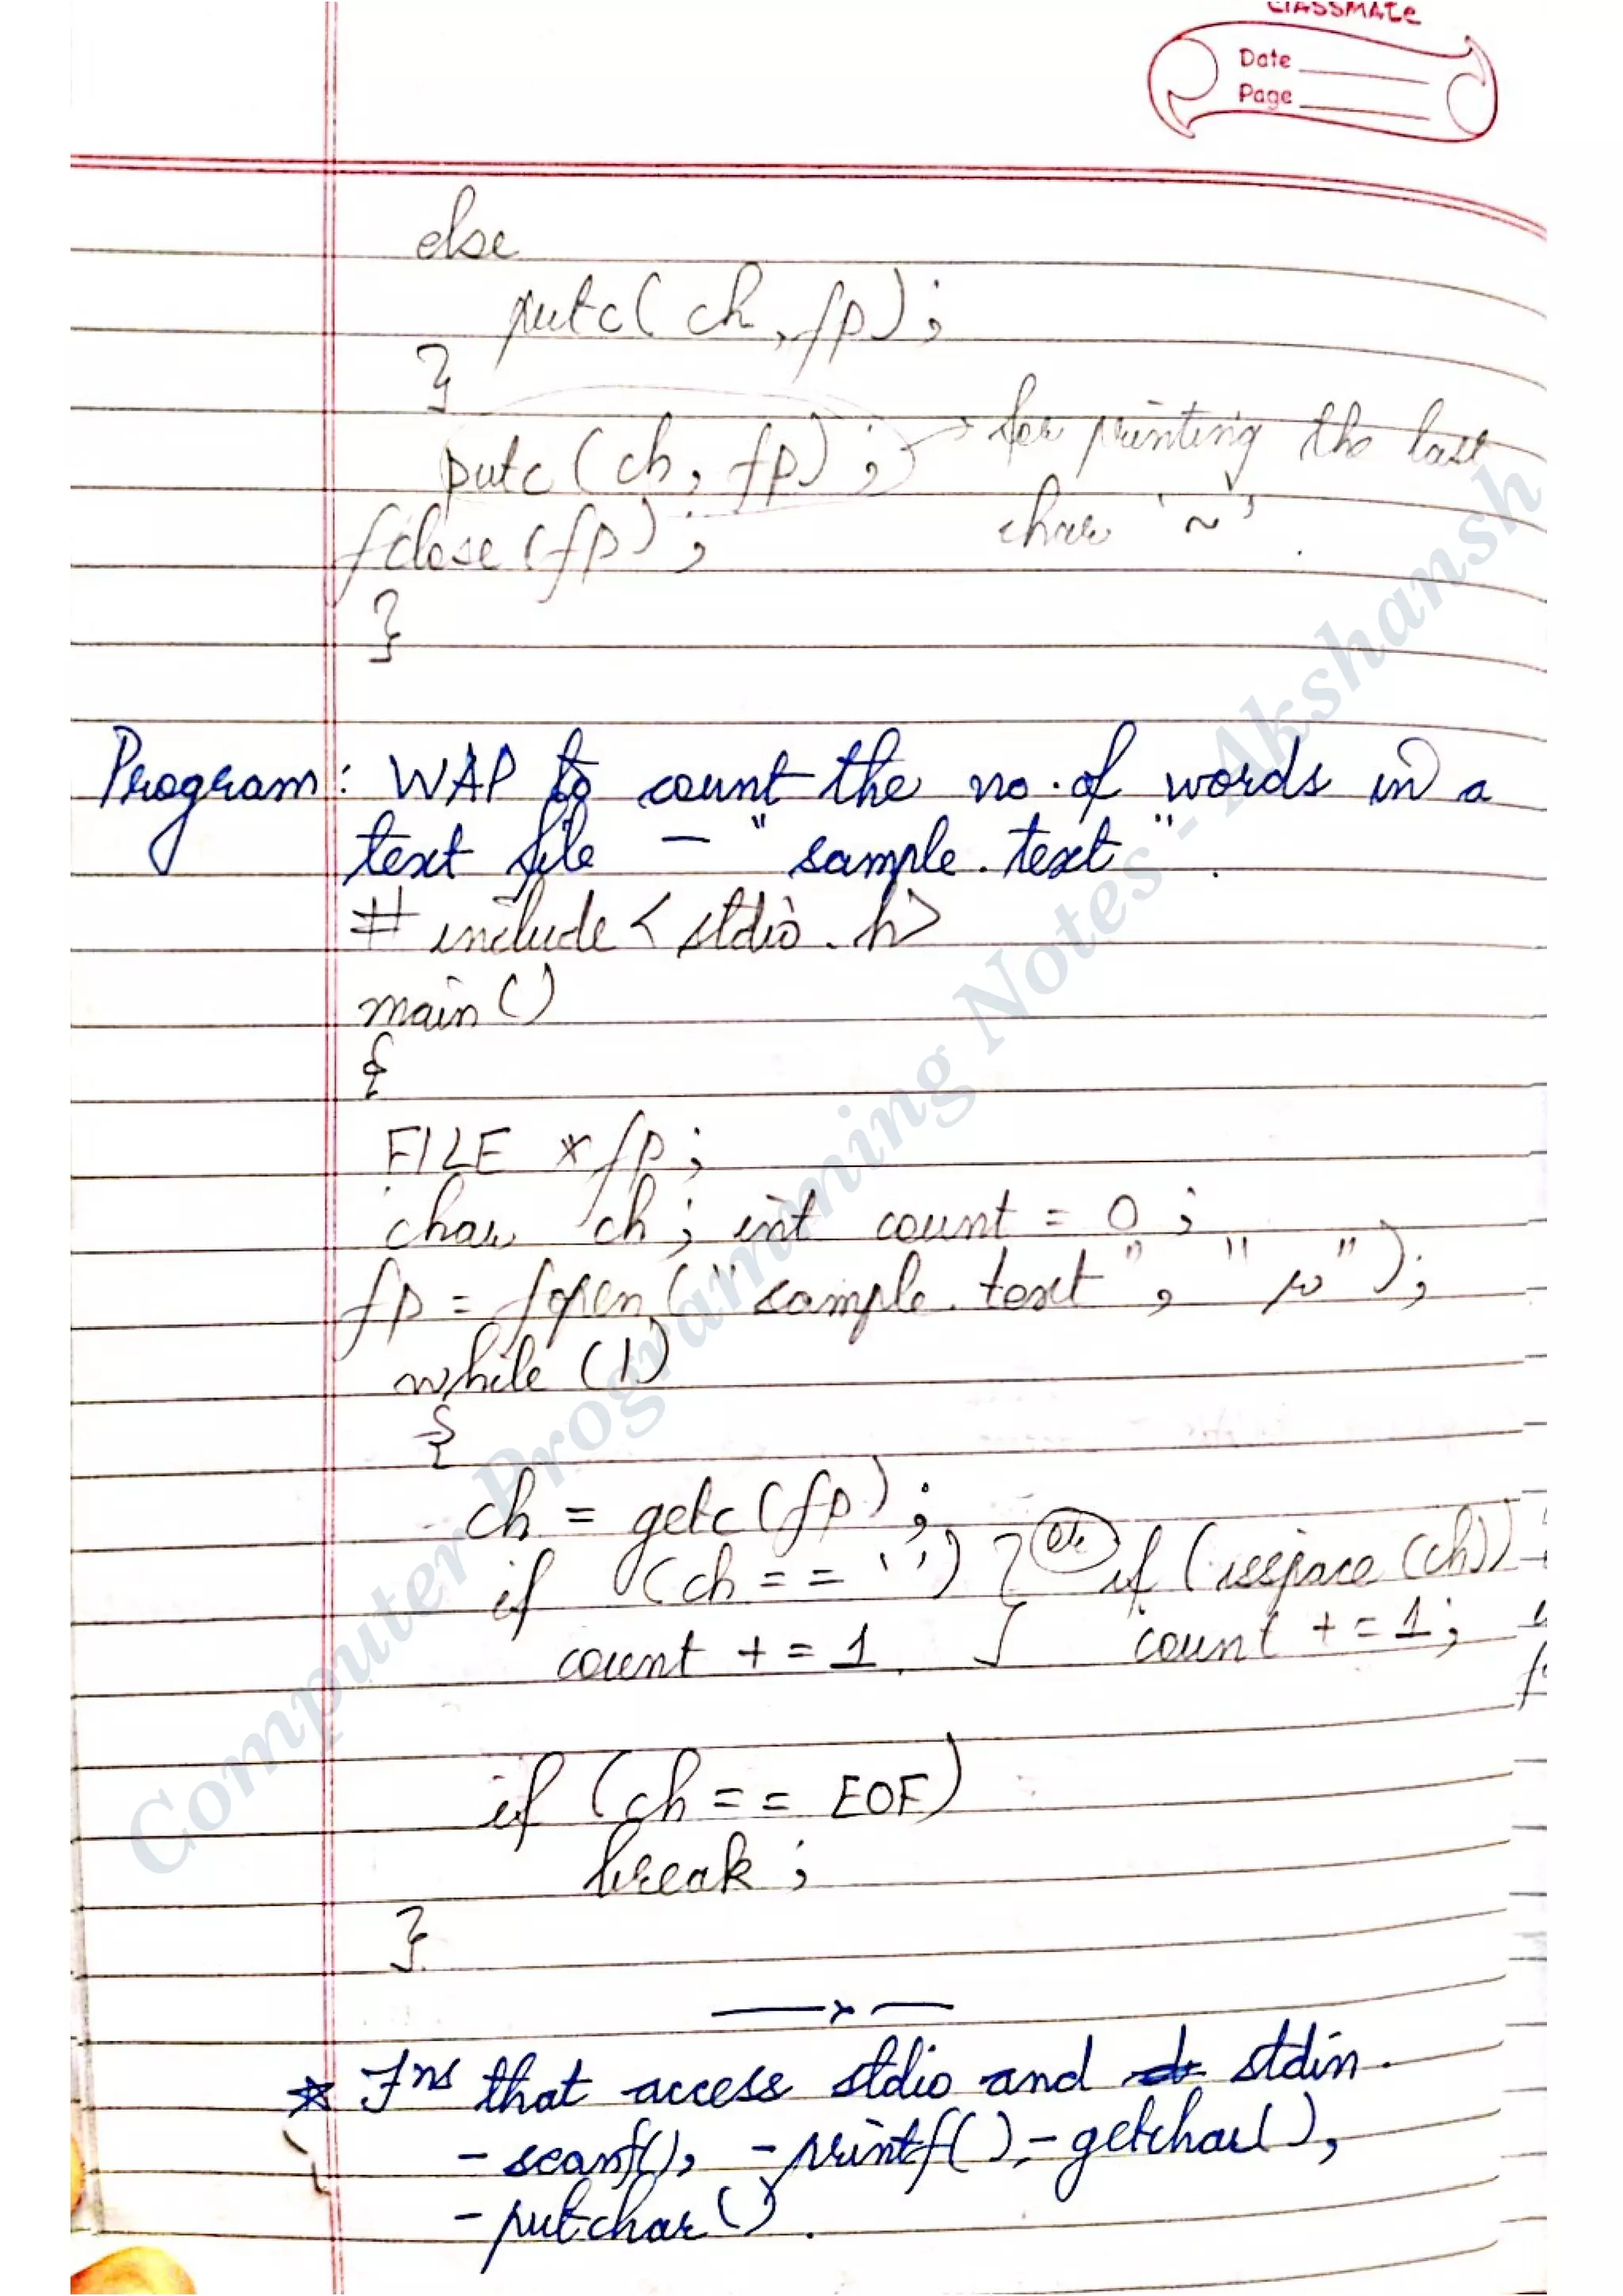 classmate
Date
Page
else
putc(ch, fp);
}
putc(ch, fp); → for printing the last
char '~'.
fclose(fp);
}
Program: WAP to count the no. of words in a
text file - "sample.text".
#include<stdio.h>
main()
{
FILE *fp;
char ch; int count = 0;
fp = fopen("sample.text", "r");
while (1)
{
ch = getc(fp);
if (ch == ' ') } or if (isspace(ch))
count += 1. } count += 1;
if (ch == EOF)
break;
}
* Fns that access stdio and stdin.
- scanf(), - printf(), - getchar(),
- putchar().
Computer Programming Notes - Akshansh